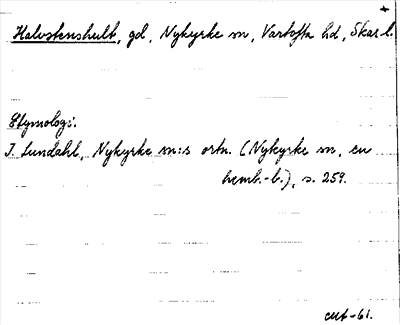 Halvstenshult, gd, Nykyrke sn, Vartofta hd, Skar. l.
Etymologi:
I. Lundahl, Nykyrke sn:s ortn. (Nykyrke sn, en
hemb.-b.), s. 259.